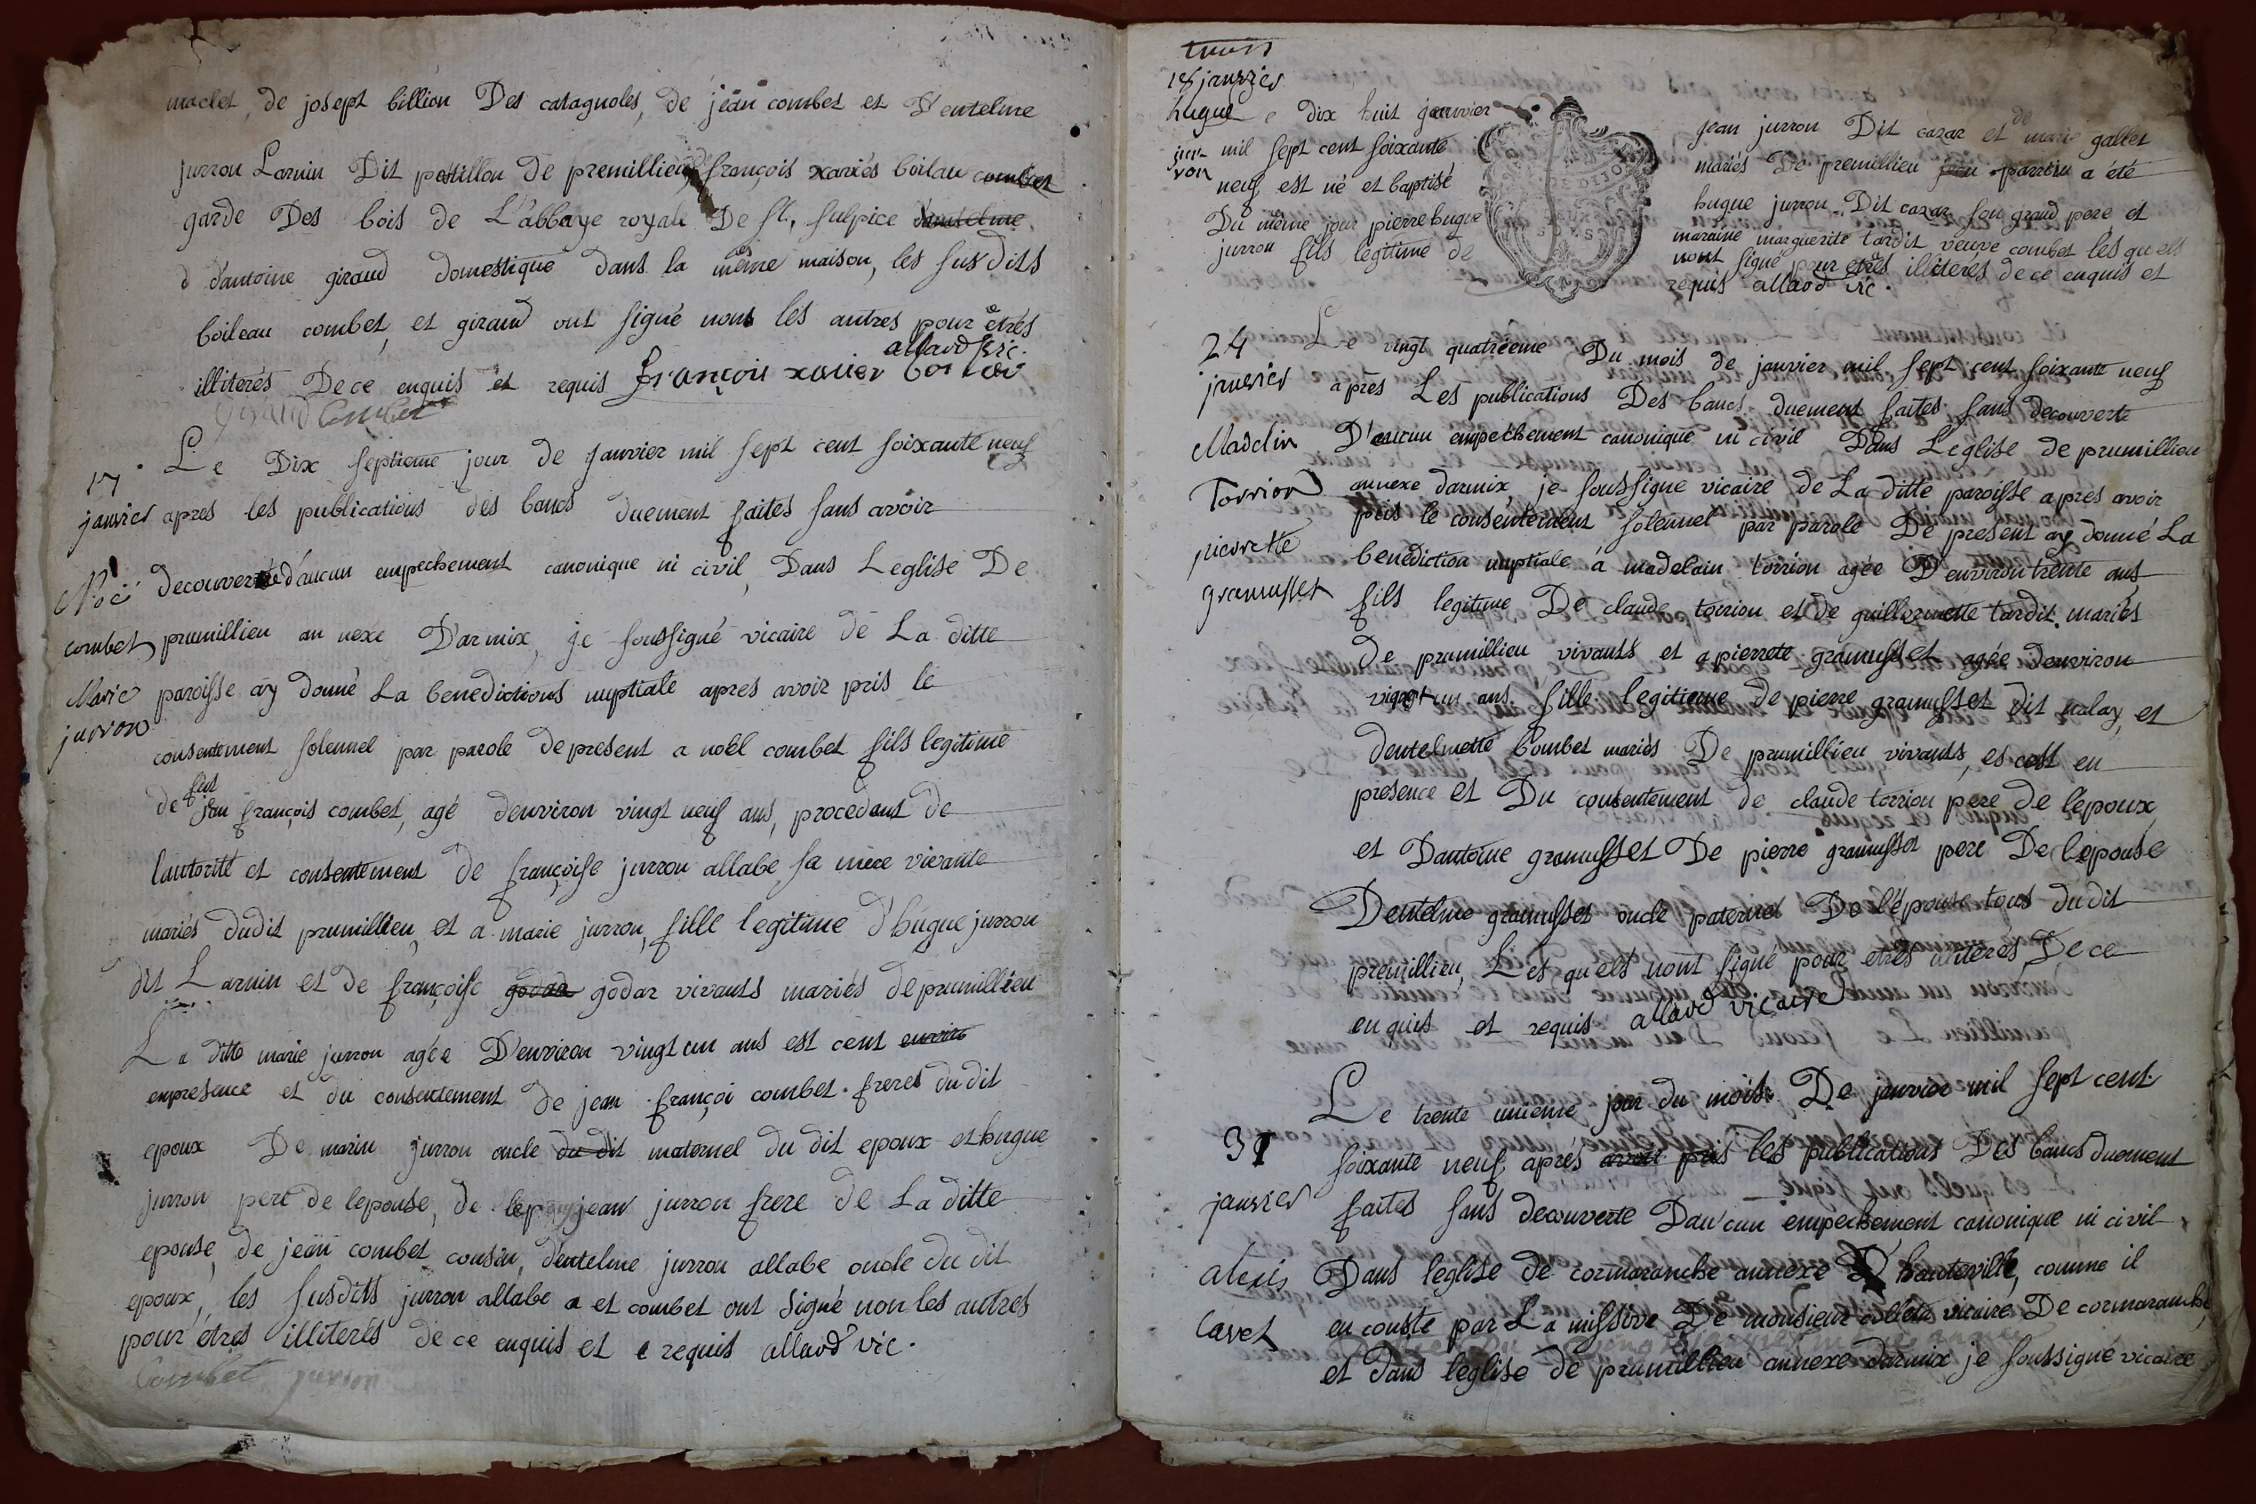 maclet, de josept billion Des catagnoles, de jéan combet et D'entelme
jurron Larnin Dit postillon de premillieu, françois xaxiés boilau combet
garde Des bois de L'abbaye royale De st, sulpice d'antelme
d d'antoine giraud domestique dans la même maison, les sus dits
boileau combet, et giraud ont signé nons les autres pour êtrés
illiterés De ce enquis et requis françois xavier boilau allard vic.
Girand Combet
17
janvier
Noë
combet
Marie
jurron
Le Dix septieme jour de janvier mil sept cent soixante neuf
apres les publications des bancs duement faites sans avoir
decouverte d'aucun empechement canonique ni civil, Dans Leglise De
prumillieu an nexe D'armix, je soussigné vicaire de La ditte
paroisse ay donné La benedictions nuptiale apres avoir pris le
consentement solennel par parole de present a noël combet fils legitime
de feu jean françois combet, agé denviron vingt neuf ans, procedant de
lautorité et consentement de françoise jurron allabe sa mere vivante
mariés dudit prumillieu, et a marie jurron, fille legitime d'hugue jurron
dit Larnin et de françoise godar godar vivants mariés de prumillieu
La ditte marie jurron agée D'environ vingt un ans est cent
en presence et du consentement de jean françoi combet freres du dit
epoux De marin jurron oncle du dit maternel du dit epoux et hugue
jurron pere de lepouse, de jean jurron frere de La ditte
epouse, de jean combet cousin, dentelme jurron allabe oncle du dit
epoux, les susdits jurron allabe a et combet ont signé non les autres
pour étres illiterés de ce enquis et e requis allard vic.
Combet jurron
18 janvier
hugue
jur-
ron
e dix huit janvier
mil sept cent soixante
neuf est né et baptisé
Du même jour pierre hugue
jurron fils legitime de
jean jurron Dit cazar et de marie gallet
mariés De premillieu parrein a été
hugue jurron Dit cazar son grand pere et
maraine marguerite tardit veuve combet les quels
nont signé pour etrés illiterés de ce enquis et
requis allard vic.
24
janvier
Madelin
Torrion
pierrette
gramusset
Le vingt quatrieme Du mois de janvier mil sept cent soixante neuf
aprés Les publications Des bancs duement faites sans decouverte
D'aucun empechement canonique ni civil Dans Leglise de prumillieu
annexe darmix, je soussigne vicaire de La ditte paroisse apres avoir
pris le consentement solennel par parole De present ay donné La
benediction nuptiale á madelain torrion agée D'environ trente ans
fils legitime De claude torrion et de guillermette tardit mariés
de prumillieu vivants et a pierrete gramusset agée denviron
vignt un ans fille legitieme de pierre gramusset dit nalay, et
dentelmette Combet mariés De prumillieu vivants, et cest en
presence et Du consentement de claude torrion pere de lepoux
et Dantoine gramusset De pierre gramusset pere De lepouse
Dentelme gramusset oncle paternel De lépouse tous du dit
premillieu, Les quels nont signé pour etrés illiterés De ce
enquis et requis allard vicaire
31
janvier
alexis
Cavet
Le trente unieme jour du mois De janvier mil sept cent
soixante neuf aprés avoir pris les publications Des bancs duement
faites sans decouverte Dau'cun empechement canonique ni civil
Dans leglise de cormaranche annexe D hauteville, comme il
en conste par La missive De monsieur vicaire De cormaranche,
et dans leglise de prumillieu annexe darmix je soussigné vicaire